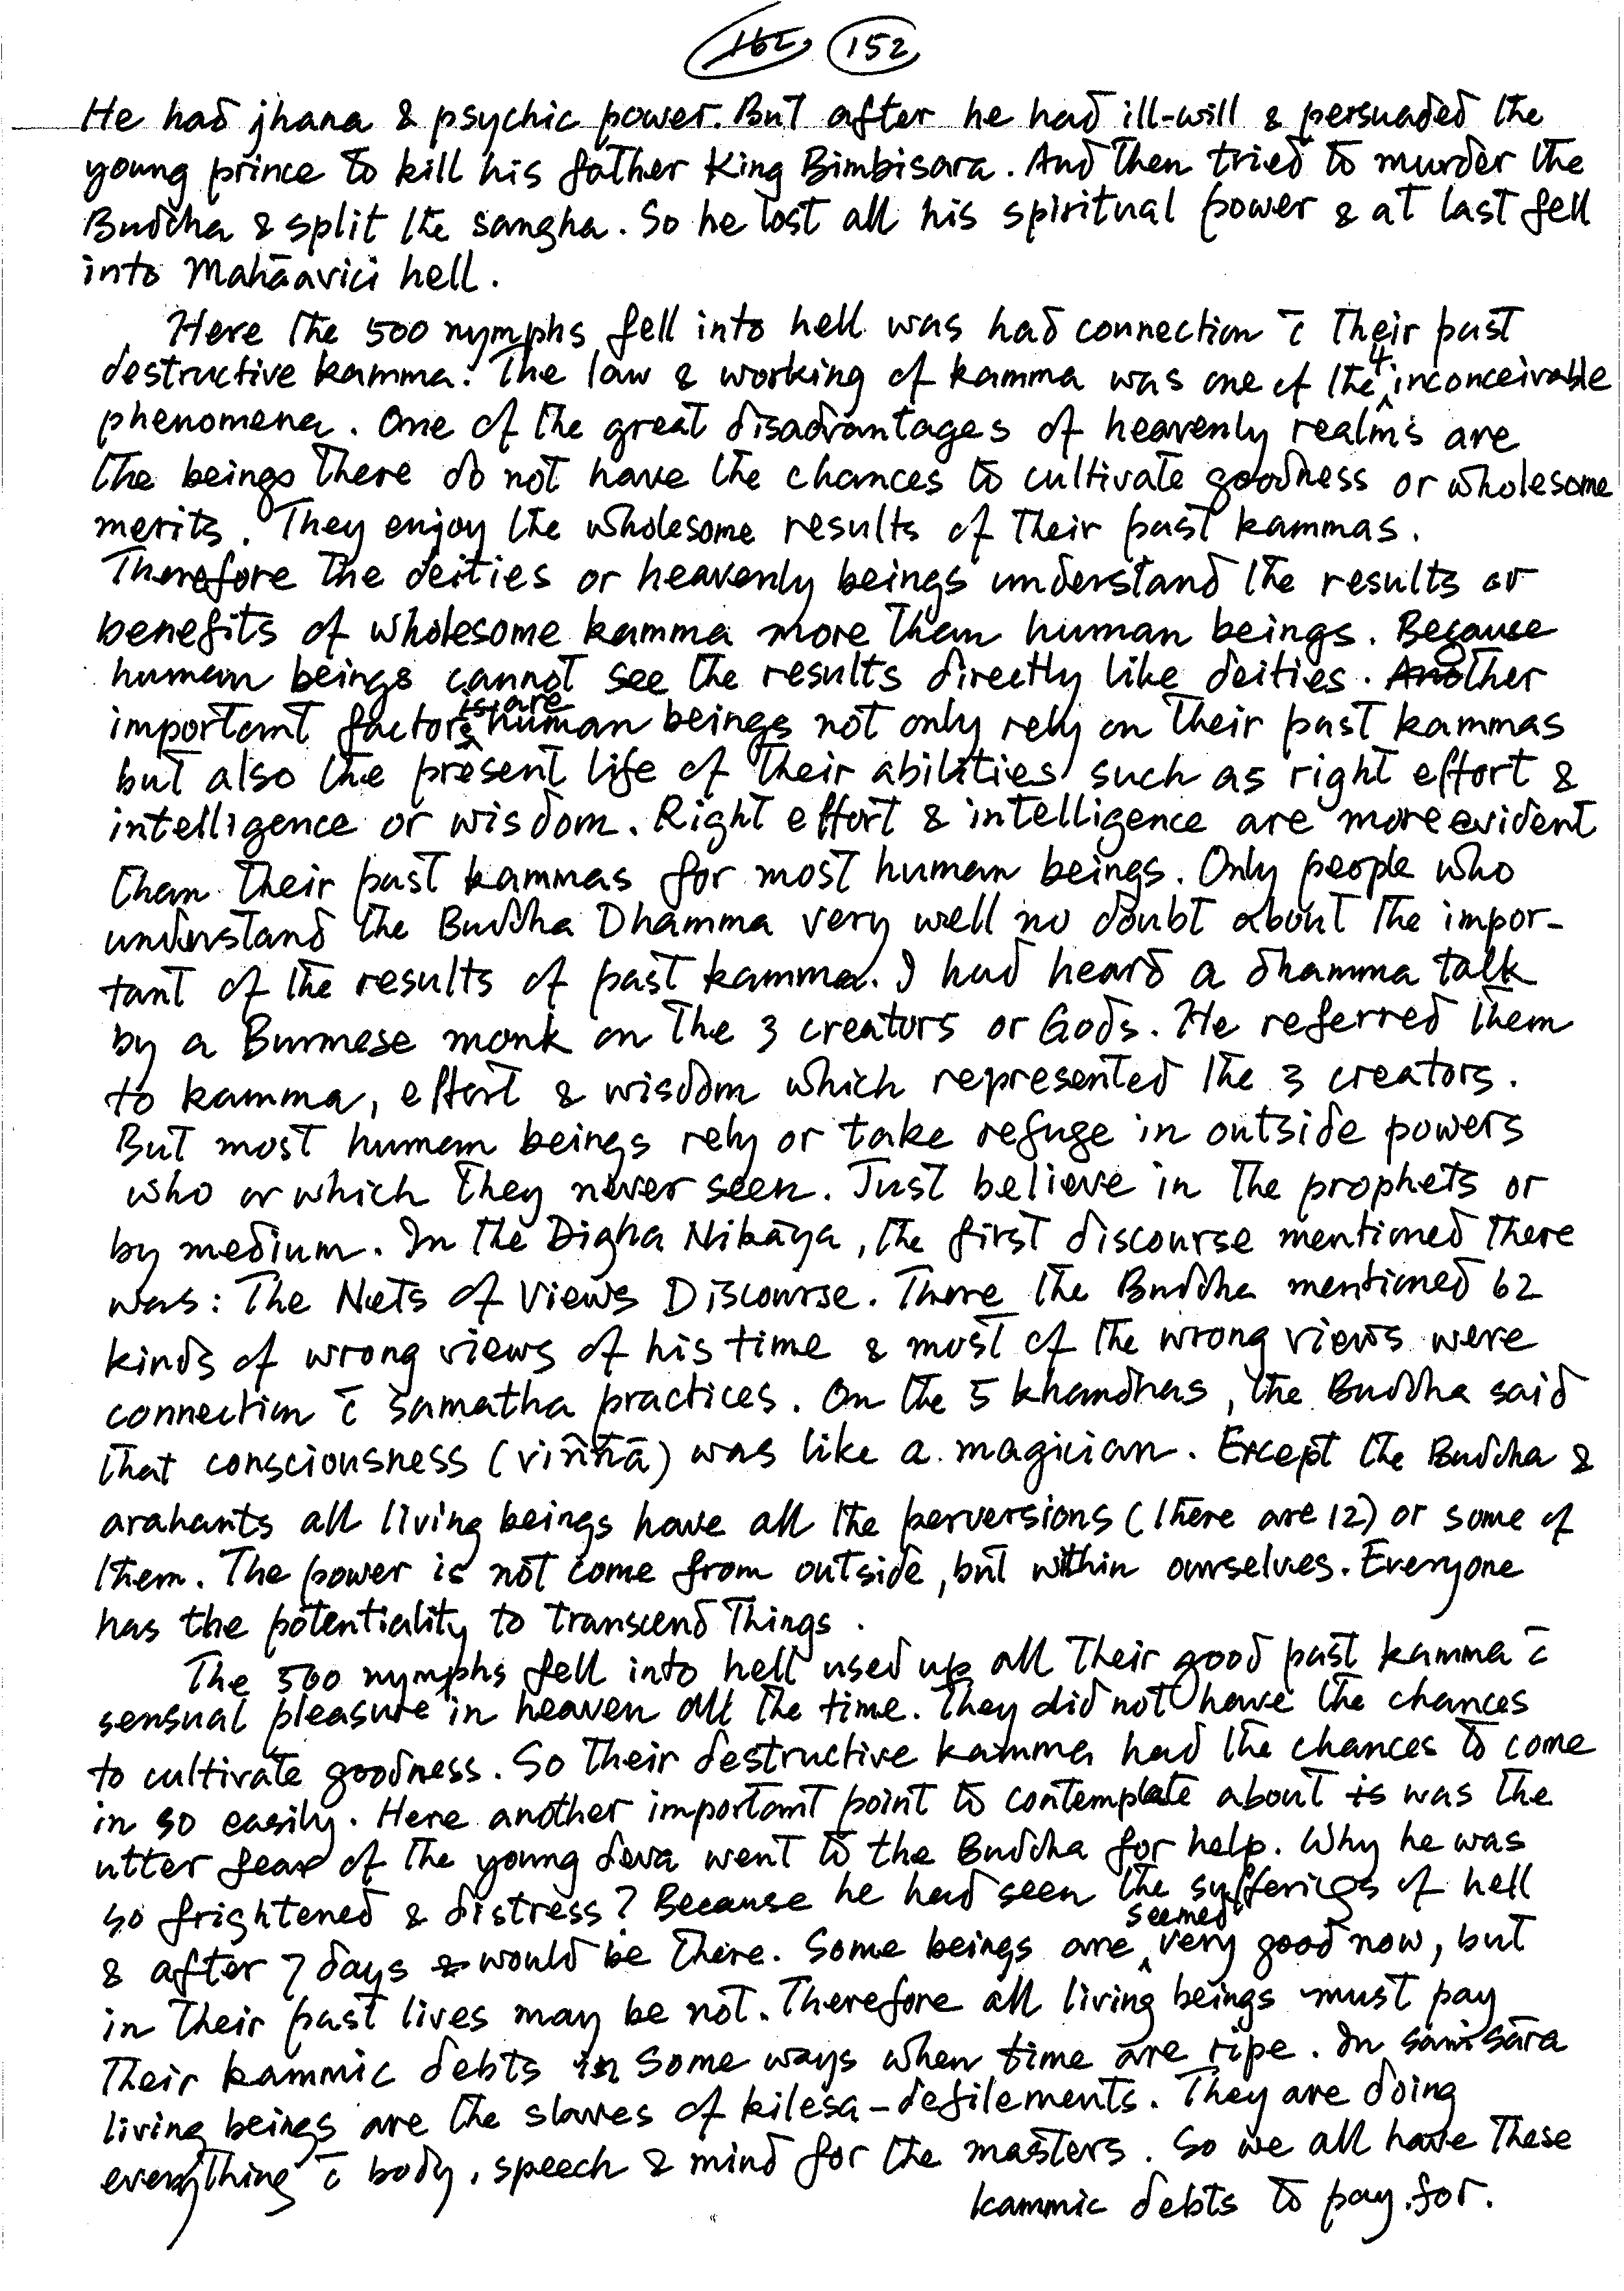 152
He had jhana & psychic power. But after he had ill-will & persuaded the
young prince to kill his father King Bimbisara. And then tried to murder the
Buddha & split the sangha. So he lost all his spiritual power & at last fell
into Mahāavici hell.
Here the 500 nymphs fell into hell was had connection c̄ their past
destructive kamma. The law & working of kamma was one of the 4 inconceivable
phenomena. One of the great disadvantages of heavenly realms are
the beings there do not have the chances to cultivate goodness or wholesome
merits. They enjoy the wholesome results of their past kammas.
Therefore the deities or heavenly beings understand the results or
benefits of wholesome kamma more than human beings. Because
human beings cannot see the results directly like deities. Another
important factors is/are human beings not only rely on their past kammas
but also the present life of their abilities such as right effort &
intelligence or wisdom. Right effort & intelligence are more evident
than their past kammas for most human beings. Only people who
understand the Buddha Dhamma very well no doubt about the impor-
tant of the results of past kamma. I had heard a dhamma talk
by a Burmese monk on the 3 creators or Gods. He referred them
to kamma, effort & wisdom which represented the 3 creators.
But most human beings rely or take refuge in outside powers
who or which they never seen. Just believe in the prophets or
by medium. In the Digha Nikāya, the first discourse mentioned there
was: The Nets of Views Discourse. There the Buddha mentioned 62
kinds of wrong views of his time & most of the wrong views were
connection c̄ samatha practices. On the 5 khandhas, the Buddha said
that consciousness (viññā) was like a magician. Except the Buddha &
arahants all living beings have all the perversions (there are 12) or some of
them. The power is not come from outside, but within ourselves. Everyone
has the potentiality to transcend things.
The 500 nymphs fell into hell used up all their good past kamma c̄
sensual pleasure in heaven all the time. They did not have the chances
to cultivate goodness. So their destructive kamma had the chances to come
in so easily. Here another important point to contemplate about is was the
utter fear of the young deva went to the Buddha for help. Why he was
so frightened & distress? Because he had seen the sufferings of hell
& after 7 days would be there. Some beings are seemed very good now, but
in their past lives may be not. Therefore all living beings must pay
their kammic debts in some ways when time are ripe. In saṁsāra
living beings are the slaves of kilesa-defilements. They are doing
everything c̄ body, speech & mind for the masters. So we all have these
kammic debts to pay for.